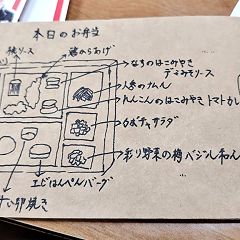 本日のお弁当
鶏からあげ
なすのはこみやき
デミみそソース
人参のナムル
れんこんのはこみやき トマト
かぼチャサラダ
彩り野菜の梅バジル和え
エビはんぺんバーグ
卵焼き